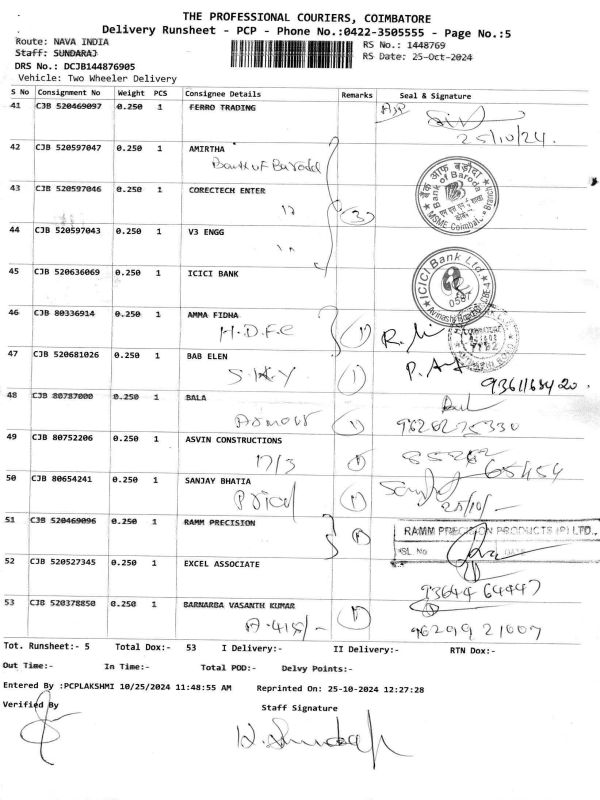 THE PROFESSIONAL COURIERS, COIMBATORE
Delivery Runsheet - PCP - Phone No.:0422-3505555 - Page No.:5
Route: NAVA INDIA RS No.: 1448769
Staff: SUNDARAJ RS Date: 25-Oct-2024
DRS No.: DCJB144876905
Vehicle: Two Wheeler Delivery
S No Consignment No Weight PCS Consignee Details Remarks Seal & Signature
41 CJB 520469097 0.250 1 FERRO TRADING
25/10/24.
42 CJB 520597047 0.250 1 AMIRTHA
Bank of Baroda
43 CJB 520597046 0.250 1 CORECTECH ENTER
3
बैंक ऑफ़ बड़ौदा
Bank of Baroda
MSME Coimbatore Branch
44 CJB 520597043 0.250 1 V3 ENGG
45 CJB 520636069 0.250 1 ICICI BANK
ICICI Bank Ltd
0587
46 CJB 80336914 0.250 1 AMMA FIDHA
H.D.F.C 1
47 CJB 520681026 0.250 1 BAB ELEN
S.K.Y 1 9361168420.
48 CJB 80787000 0.250 1 BALA
1 9626275330
49 CJB 80752206 0.250 1 ASVIN CONSTRUCTIONS
17/3 1 85262 65454
50 CJB 80654241 0.250 1 SANJAY BHATIA
1 25/10/-
51 CJB 520469096 0.250 1 RAMM PRECISION
RAMM PRECISION PRODUCTS (P) LTD.,
SL No DATE
52 CJB 520527345 0.250 1 EXCEL ASSOCIATE
93644 64447
53 CJB 520378850 0.250 1 BARNARBA VASANTH KUMAR
A-418/- 1 96299 21007
Tot. Runsheet:- 5 Total Dox:- 53 I Delivery:- II Delivery:- RTN Dox:-
Out Time:- In Time:- Total POD:- Delvy Points:-
Entered By :PCPLAKSHMI 10/25/2024 11:48:55 AM Reprinted On: 25-10-2024 12:27:28
Verified By Staff Signature